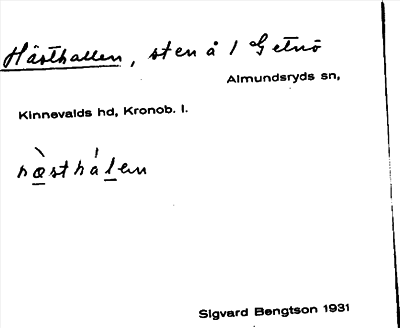 Hästhallen, sten å 1 Getnö
Almundsryds sn,
Kinnevalds hd, Kronob. l.
hæ̀stháḷen
Sigvard Bengtson 1931